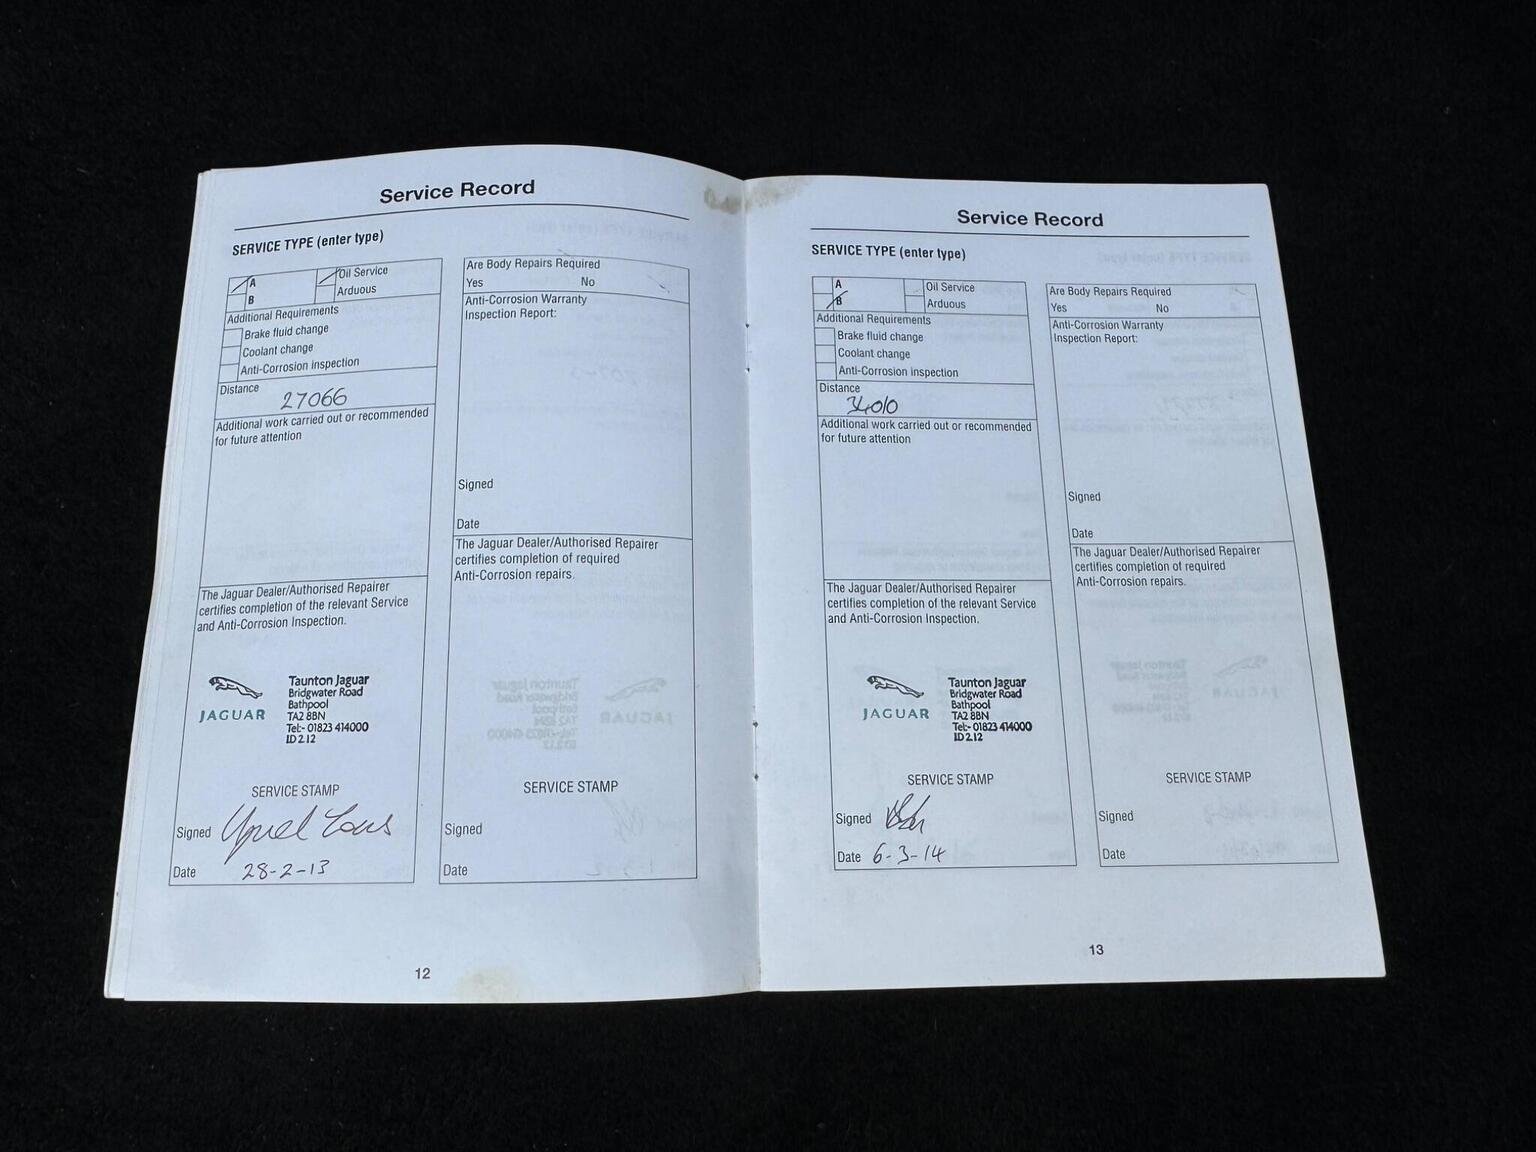 Service Record
SERVICE TYPE (enter type)
A
B
Oil Service
Arduous
Additional Requirements
Brake fluid change
Coolant change
Anti-Corrosion inspection
Distance
27066
Additional work carried out or recommended
for future attention
The Jaguar Dealer/Authorised Repairer
certifies completion of the relevant Service
and Anti-Corrosion Inspection.
JAGUAR
Taunton Jaguar
Bridgwater Road
Bathpool
TA2 8BN
Tel:- 01823 414000
ID 2.12
SERVICE STAMP
Signed
Date 28-2-13
Are Body Repairs Required
Yes No
Anti-Corrosion Warranty
Inspection Report:
Signed
Date
The Jaguar Dealer/Authorised Repairer
certifies completion of required
Anti-Corrosion repairs.
SERVICE STAMP
Signed
Date
12
Service Record
SERVICE TYPE (enter type)
A
B
Oil Service
Arduous
Additional Requirements
Brake fluid change
Coolant change
Anti-Corrosion inspection
Distance
34010
Additional work carried out or recommended
for future attention
The Jaguar Dealer/Authorised Repairer
certifies completion of the relevant Service
and Anti-Corrosion Inspection.
JAGUAR
Taunton Jaguar
Bridgwater Road
Bathpool
TA2 8BN
Tel:- 01823 414000
ID 2.12
SERVICE STAMP
Signed
Date 6-3-14
Are Body Repairs Required
Yes No
Anti-Corrosion Warranty
Inspection Report:
Signed
Date
The Jaguar Dealer/Authorised Repairer
certifies completion of required
Anti-Corrosion repairs.
SERVICE STAMP
Signed
Date
13